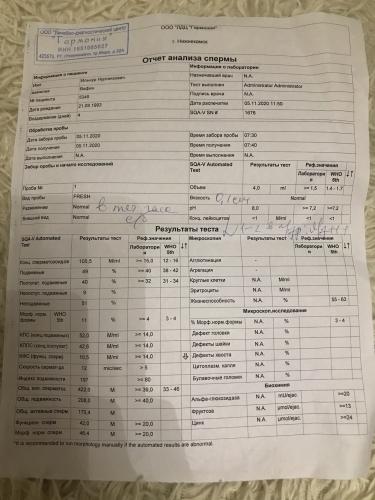 ООО "Лечебно-диагностический центр"
"Гармония"
ИНН 1651065827
ООО "ЛДЦ "Гармония"
г. Нижнекамск
Отчет анализа спермы
Информация о пациенте
Информация о лаборатории
Имя Ильнур
Назначивший врач N.A.
Фамилия Вафин
Тест выполнен Administrator Administrator
№ пациента 0346
Подпись врача N.A.
Дата рождения 21.09.1993
Дата распечатки 05.11.2020 11:50
Воздержание (дней) 4
SQA-V SN # 1676
Обработка пробы
Дата забора пробы 05.11.2020
Время забора пробы 07:30
Дата получения 05.11.2020
Время получения 07:40
Дата выполнения N.A.
Время выполнения N.A.
Забор пробы и начало исследований
SQA-V Automated Test Результаты тест Реф.значения
Лаборатория WHO 5th
Проба № 1
Объем 4,0 ml >= 1,5 1.4 - 1.7
Вид пробы FRESH
Вязкость Normal Normal
Разжижение Normal
pH 8,0 >= 7,2 >=7.2
Внешний вид Normal
Конц. лейкоцитов <1 M/ml <1 <1
Результаты теста
SQA-V Automated Test Результаты теста Реф.значения
Лаборатория WHO 5th
Микроскопия Результаты тест Реф.значения
Лаборатория WHO 5th
Конц. сперматозоидов 105,5 M/ml >= 15,0 12 - 16
Агглютинация -
Подвижные 49 % >= 40 38 - 42
Агрегация
Поступат. подвижн. 40 % >= 32 31 - 34
Круглые клетки N.A. M/ml
Непоступ. подвиж. 9 %
Эритроциты N.A. M/ml
Неподвижные 51 %
Жизнеспособность N.A. % 55 - 63
Морф. норм. WHO 5th формы 11 % >= 4 3 - 4
Микроскоп.исследования
% Морф.норм.формы N.A. % 3 - 4
КПС (конц.подвиж) 52,0 M/ml >= 14,0
Дефект головки N.A. %
КППС (конц.поступ) 42,6 M/ml >= 14,0
Дефекты шейки N.A. %
КФС (функц. сперм) 10,5 M/ml >= 14,0
Дефекты хвоста N.A. %
Скорость сперматоз 12 mic/sec > 5
Цитоплазм. капля N.A. %
Индекс подвижности 197 >= 80
Булавочные головки N.A. %
Общ. кол. сперматоз 422,0 M >= 39,0 33 - 46
Биохимия
Общ. подвижные 208,0 M >= 40,0
Альфа-глюкозидаза N.A. mU/ejac. >=20
Общ. активные сперм 170,4 M
Фруктоза N.A. µmol/ejac. >=13
Функцион. сперм 42,0 M >= 20,0
Цинк N.A. µmol/ejac. >=24
Морф. норм. сперм 46,4 M >= 20,0
*It is recommended to run morphology manually if the automated results are abnormal.